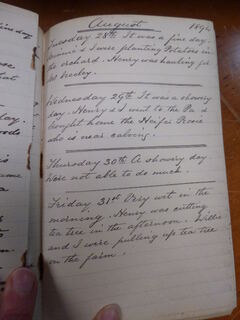 August 1894
Tuesday 28th It was a fine day.
& I were planting Potatoes in
the orchard. Henry was hauling for
Wednesday 29th It was a showery
day. Henry & I went to the Pa &
brought home the Heifer Rosie
who is near calving.
Thursday 30th A showery day
Were not able to do much.
Friday 31st Very wet in the
morning. Henry was cutting
tea tree in the afternoon. Willie
and I were pulling up tea tree
on the farm.